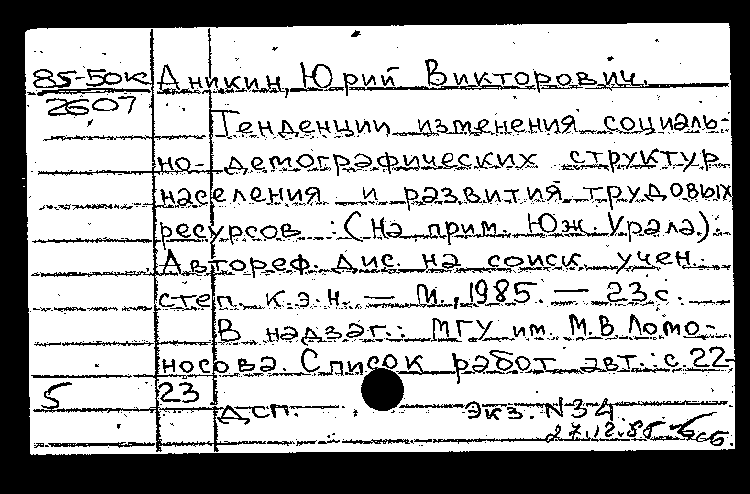 85-50к Аникин, Юрий Викторович.
2607
Тенденции изменения социаль-
но-демографических структур
населения и развития трудовых
ресурсов : (На прим. Юж. Урала).
Автореф. дис. на соиск. учен.
степ. к.э.н. — М., 1985. — 23 с.
В надзаг.: МГУ им. М.В. Ломо-
носова. Список работ авт.: с. 22-
5 23
ДСП. экз. N 34
27.12.85